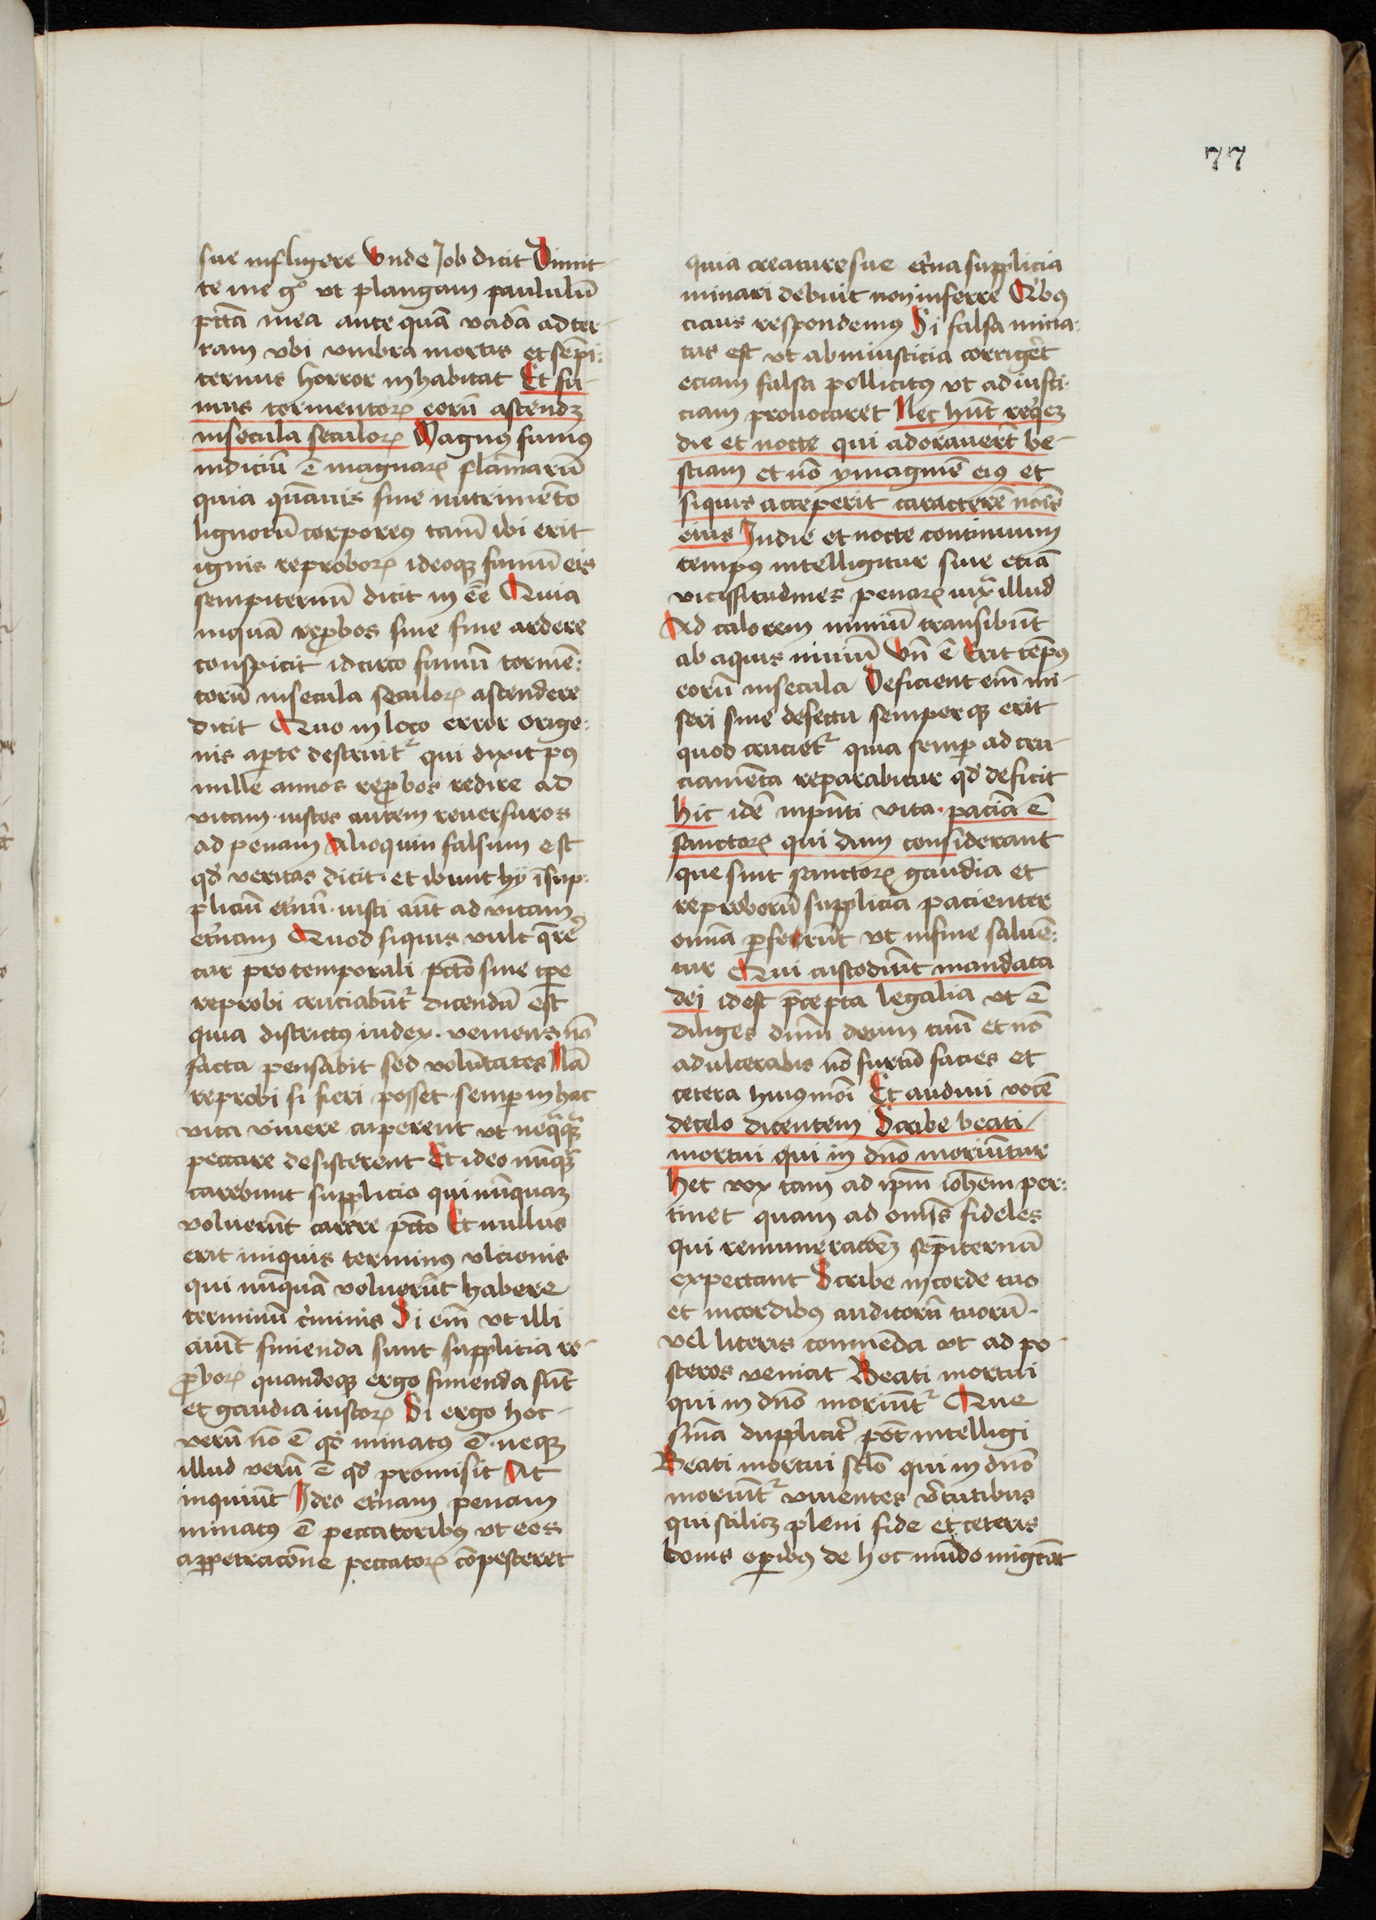 77
sue infligere Unde Job dicit Dimit
te me gͦ vt plangam paululū
pctā mea ante quā vadā ad ter-
ram vbi vmbra mortis et sēpi:
ternus horror inhabitat Et fu-
mus tormentoꝝ eorū ascendꝫ
in secula seculoꝝ Magnꝰ fumꝰ
indiciū ē magnaꝝ flāmarū
quia quāuis sine nutrimēto
lignorū corporeꝰ tam̄ ibi erit
ignis reproboꝝ ideoqꝫ fumū eis
sempiternū dicit in eē Quia
inquā reꝓbos sine fine ardere
conspicit idcirco fumū tormē:
torū in secula seculoꝝ ascendere
dicit Quo in loco error orige:
nis aꝑte destruitᷣ qui dixit pꝰ
mille annos reꝓbos redire ad
vitam iustos autem reuersuros
ad penam Alioquin falsum est
qď veritas dicit et ibunt hij ī sup:
pliciū et̓nū iusti aūt ad vitam
et̓nam Quod si quis vult q̄re̓
cur pro temporali pctō sine tp̄e
reprobi cruciabūtᷣ dicendū est
quia districtꝰ iudex veniens nō
facta pensabit sed volūtates Nā
reprobi si fieri posset semꝑ in hac
vita viuere cuperent vt neqͣqͣꝫ
peccare desisterent Et ideo nūqͣꝫ
carebunt supplicio qui nūquaꝫ
voluerūt carere pctō Et nullus
erit iniquis terminꝰ vlcionis
qui nūquā voluerūt habere
terminū cͥminis Si eīm vt illi
aiūt finienda sunt supplicia re-
ꝓboꝝ quandoqꝫ ergo finienda sūt
et gaudia iustoꝝ Si ergo hoc
verū nō ē qď minatꝰ ē neqꝫ
illud verū ē qď promisit At
inquiūt Ideo et̓nam penam
minatꝰ ē peccatoribꝰ vt eos
a ꝑpetracōne peccatoꝝ cōpesceret
quia creature sue et̓na supplicia
minari debuit non inferre Qͥbꝰ
cicius respondemꝰ Si falsa mina:
tus est vt ab iniusticia corrige̓t
eciam falsa pollicitꝰ vt ad iusti:
ciam prouocaret Nec hn̄t requieꝫ
die et nocte qui adorauerūt be-
stiam et nō ymaginē eiꝰ et
si quis acceperit caracterē noīs
eius In die et nocte continuum
tempꝰ intelligitur siue etiā
vicissitudines penaꝝ iuxͣ illud
Ad calorem nimiū transibūt
ab aquis niuiū Un̄ ē Erit tēpꝰ
eorū in secula Deficient eīm mi-
seri sine defectu semperqꝫ erit
quod crucietᷣ quia semꝑ ad cru-
ciamēta reparabitur qď deficit
Hic idē in pn̄ti vita paciēcia ē
sanctoꝝ qui dum considerant
que sint sanctoꝝ gaudia et
reproborū supplicia pacienter
omīa ꝑferūt vt in fine saluē:
tur Qui custodiūt mandata
dei id est p̄cepta legalia vt ē
diliges dn̄m deum tuū et nō
adulterabis nō furtū facies et
cetera huiꝰmōi Et audiui vocē
de celo dicentem Scribe beati
mortui qui in dn̄o moriūtur
Hec vox tam ad ip̄m ioh̄em per:
tinet quam ad om̄s fideles
qui remuneracōeꝫ sēpiternā
expectant Scribe in corde tuo
et in cordibꝰ auditorū tuorū
vel literis cōmenda vt ad po-
steros veniat Beati mortui
qui in dn̄o moriūtᷣ Que
sn̄ia duplicit̓ pōt intelligi
Beati mortui sclō qui in dn̄o
moriūtᷣ viuentes v̓tutibus
qui scilicꝫ pleni fide et ceteris
bonis oꝑibꝰ de hoc mūdo migrāt